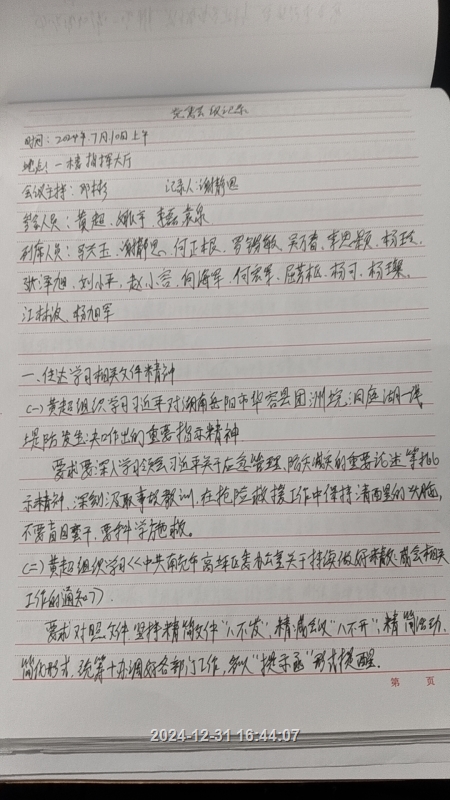 党委会议记录
时间：2024年7月10日上午
地点：一楼指挥大厅
会议主持：邓彬 记录人：谢静思
参会人员：黄超、姚宇、李磊、袁泉
列席人员：马天玉、谢静思、何正权、罗锡敏、吴万春、李思颖、杨珏、
张泽旭、刘小平、赵小言、向海军、何宏军、屈芳柽、杨可、杨璨、
江林波、杨旭军
一、传达学习相关文件精神
(一)黄超组织学习习近平对湖南岳阳市华容县团洲垸洞庭湖一线
堤防发生决口作出的重要指示精神
要求要深入学习领会习近平关于应急管理、防灾减灾的重要论述等批
示精神，深刻汲取事故教训，在抢险救援工作中保持清醒的头脑，
不要盲目蛮干，要科学施救。
(二)黄超组织学习《中共南充市高坪区委办公室关于持续做好精文减会相关
工作的通知》。
要求对照文件坚持精简文件"八不发"，精减会议"八不开"，精简活动、
简化形式，统筹协调好各部门工作，多以"提示函"形式提醒。
第 页
2024-12-31 16:44:07